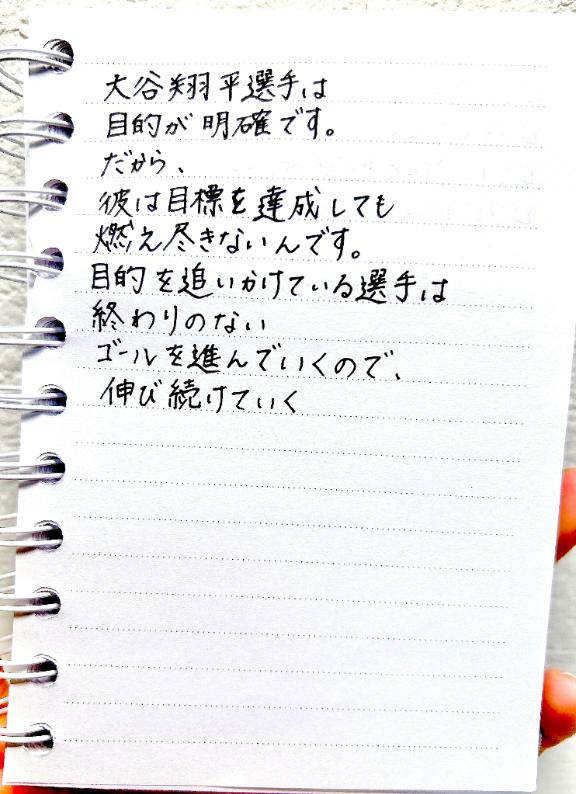 大谷翔平選手は
目的が明確です。
だから、
彼は目標を達成しても
燃え尽きないんです。
目的を追いかけている選手は
終わりのない
ゴールを進んでいくので、
伸び続けていく